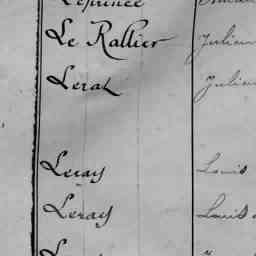 Le Rallier Julien
Lerat Julien
Leray Louis
Leray Louis